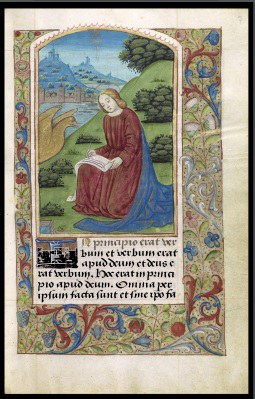 n principio erat ver
bum et verbum erat
apud deum et deus e
rat verbum. Hoc erat in princi
pio apud deum. Omnia per
ipsum facta sunt et sine ipo fa